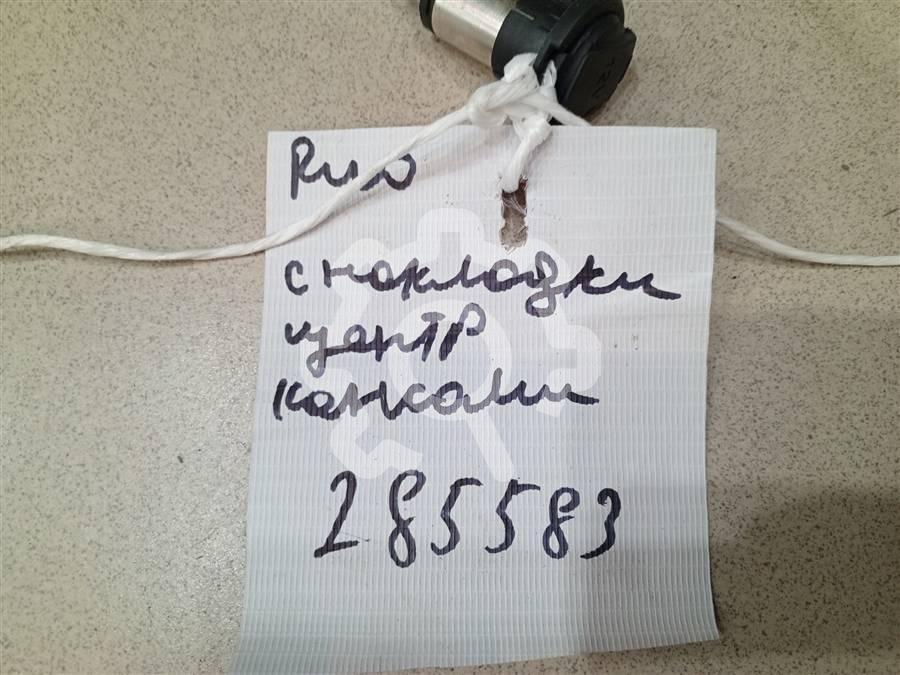 Rио
с накладки
центр
консоли
285583